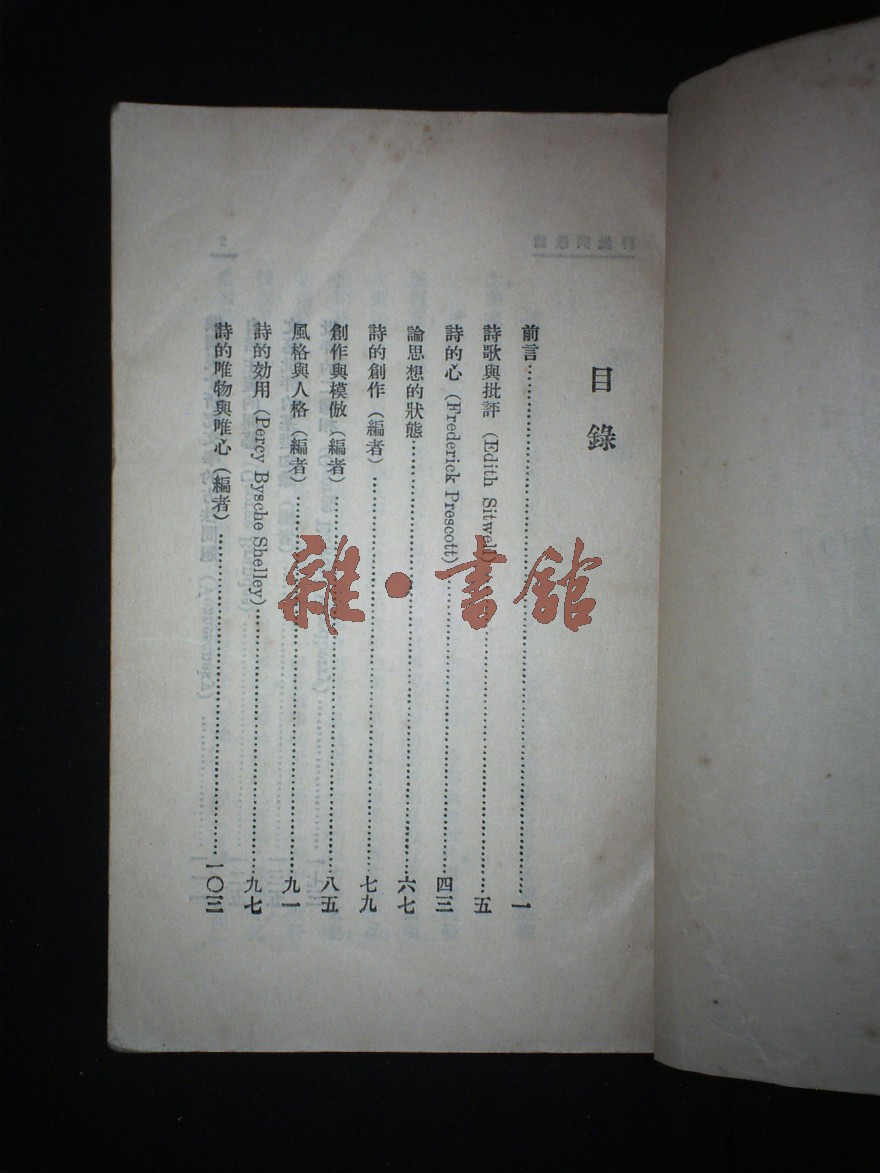 目錄
前言……一
詩歌與批評 (Edith Sitwell)……五
詩的心 (Frederick Prescott)……四三
論思想的狀態……六七
詩的創作 (編者)……七九
創作與模倣 (編者)……八五
風格與人格 (編者)……九一
詩的効用 (Percy Bysche Shelley)……九七
詩的唯物與唯心 (編者)……一〇三
雜·書館